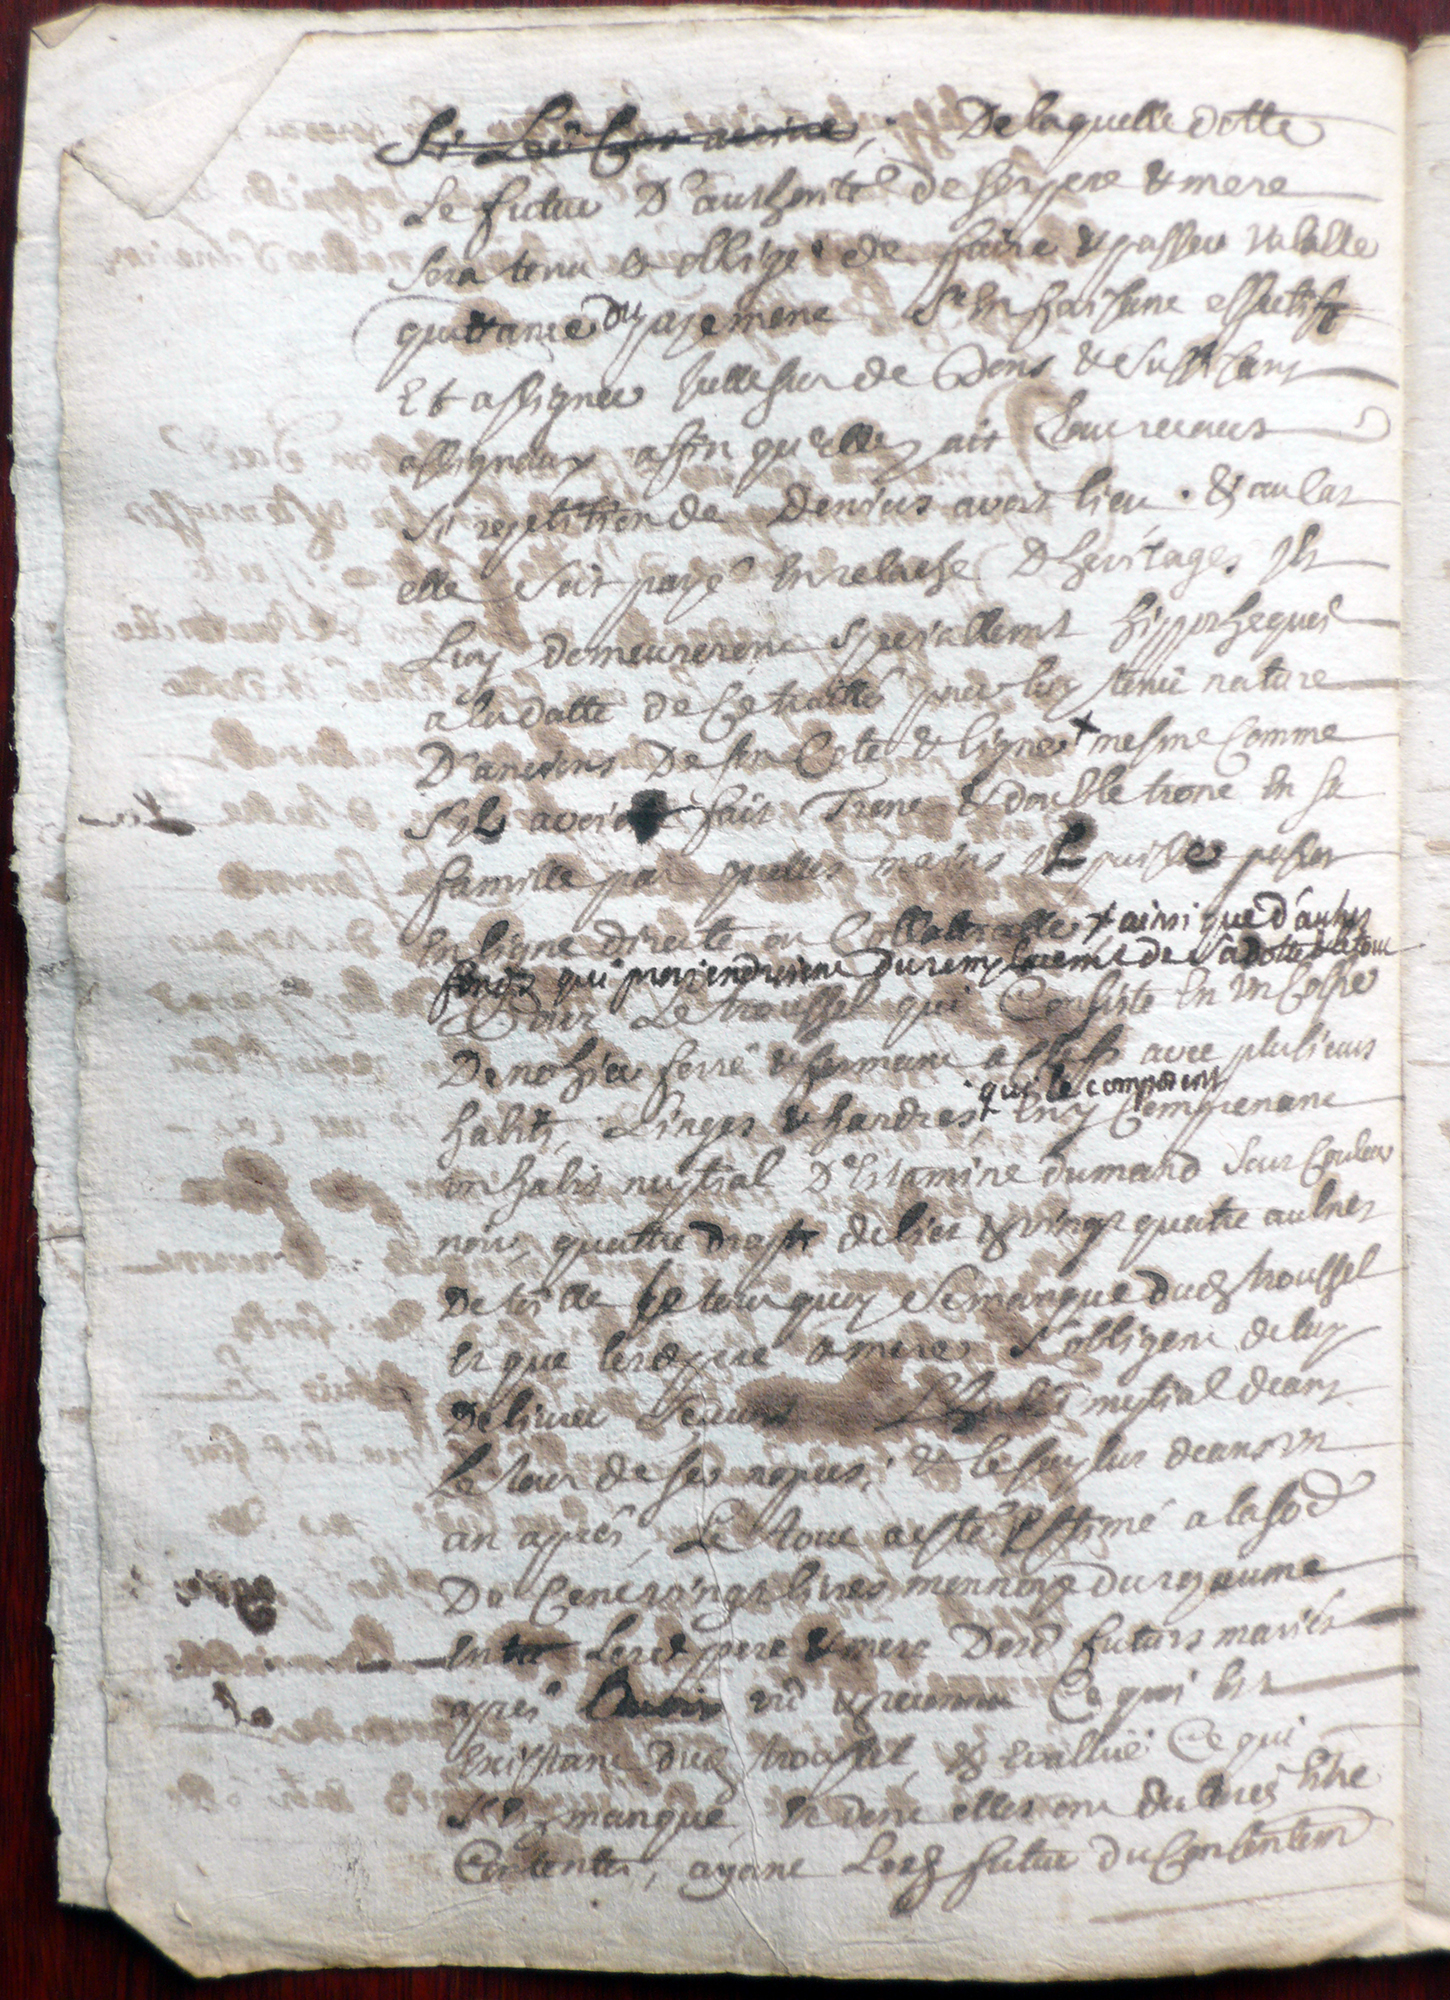 De laquelle dotte
Le futur D'authorité de ses pere & mere
sera tenu & obligé de faire & passer valable
quittance du payement S'en faisant effectif
Et assigner sur de bons & suffisans
assignaux affin qu'elle y ait recours
Si repetition de Deniers avoit lieu . & au cas
elle soit payé En relache D'heritages Ils
Luy demeureront speciallemt hippotheques
a la datte de Ce traitté pour luy tenir nature
D'anciens De son Coté & ligne + mesme Comme
S'ils avoient fait Trone & double trone En sa
famille par quelles mains Il puisse passer
En ligne directe ou Collateralle + ainsi que d'autres
fonds qui proviendroient du remplacemt de sa dotte
Le troussel qui Consiste En un Cofre
De nohier ferré & fermant a clefs avec plusieurs
habits, Linges & hardes, qui le composent En y Comprenant
un habis nuptial D'Estamine dumand sur Couleur
noir, quattre draps de lict & vingt quatre aulnes
De toille le tout quoy Se manque dud troussel
Et que lesd pere & mere S'obligent de luy
Delivrer L'habit nuptial avant
Le jour de ses nopces; & le surplus dans un
an aprés, Le tout a esté Estimé a la so͞e
De Cent vingt livres monnoye du royaume
Entre Lesd pere & mere Desd futurs mariés
aprés avoir vû & reconnu Ce qui Est
Existant dud troussel, & Evallué Ce qui
S'En manque, Et dont elles ont declaré Etre
Contentes, ayant Led futur du Consentemt